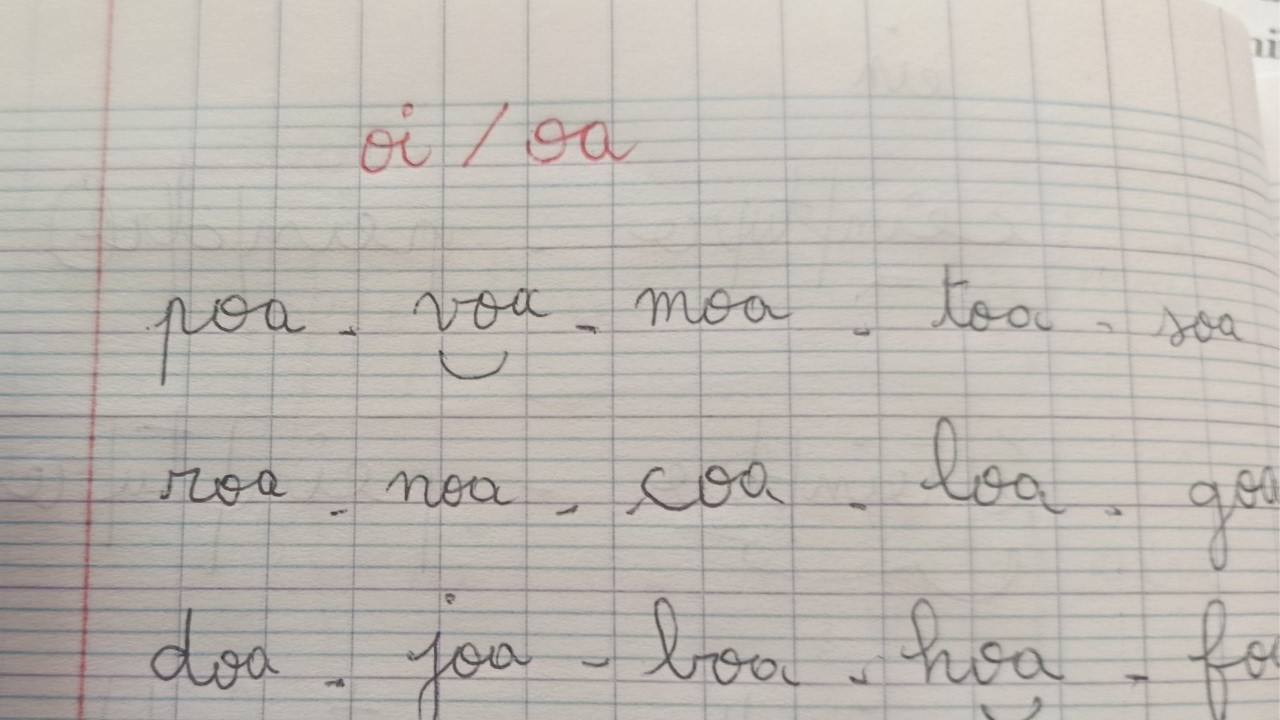 oi / oa
poa - voa - moa - toa - soa
roa - noa - coa - loa - goa
doa - joa - boa - hoa -